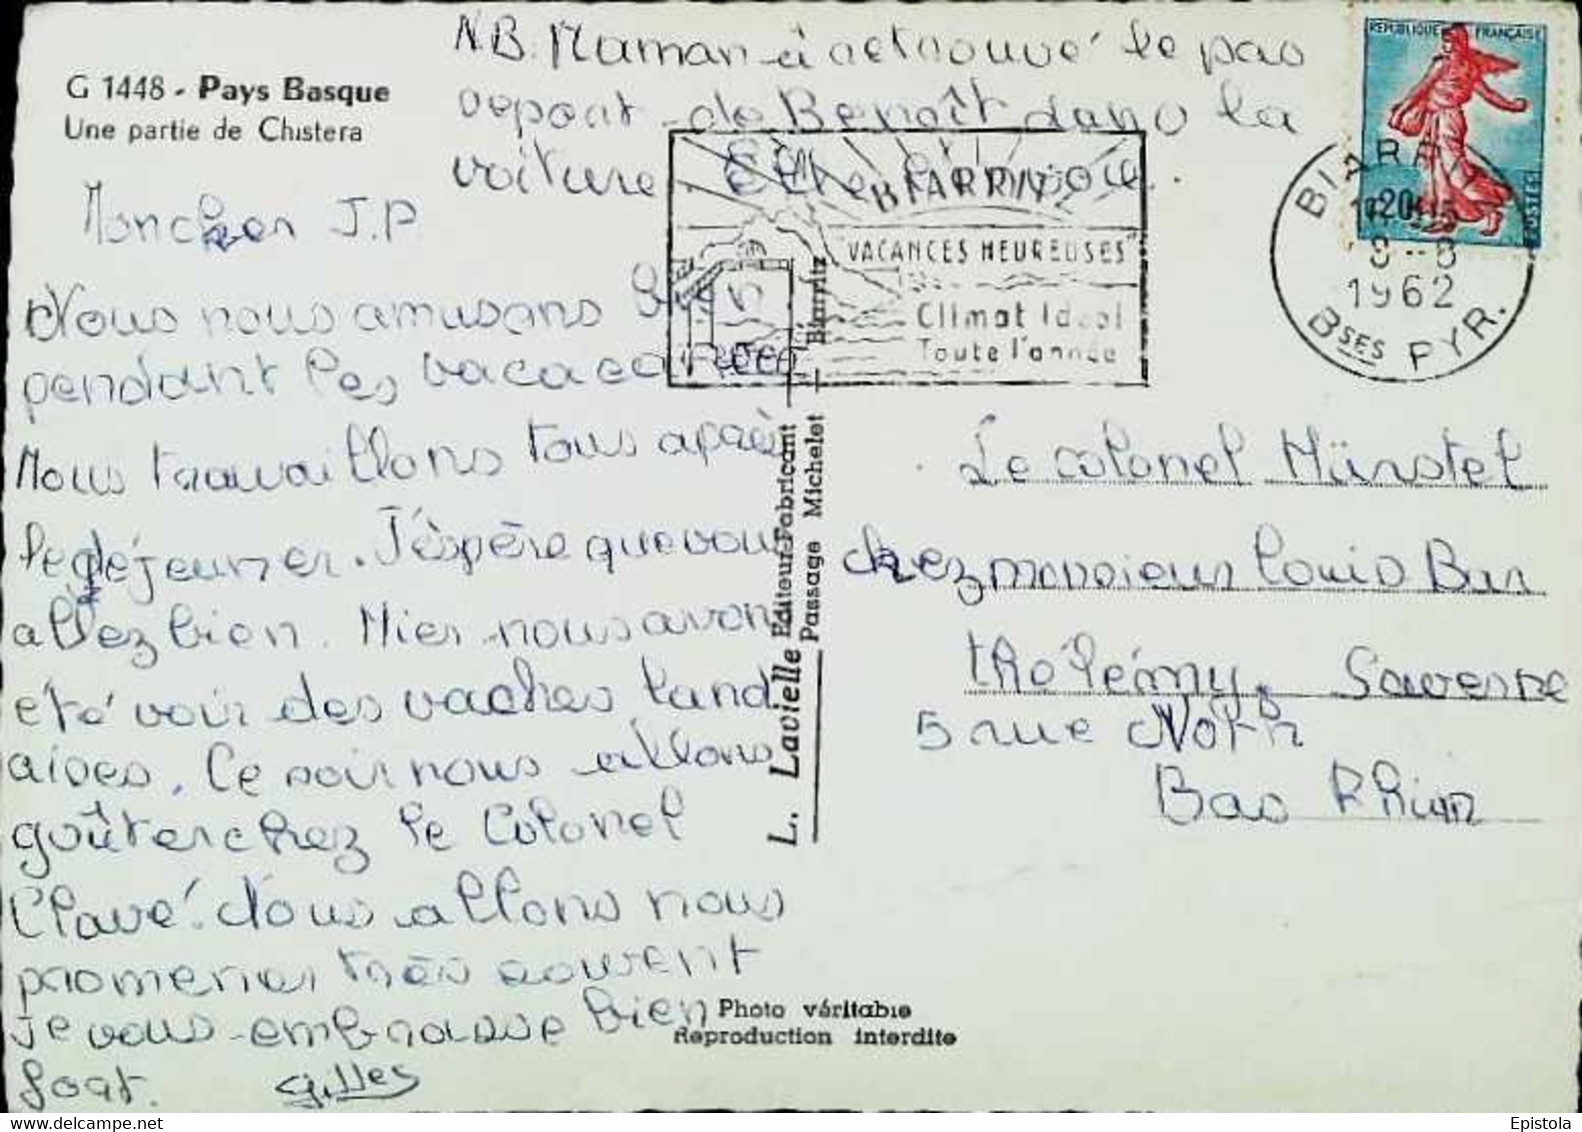 G 1448 - Pays Basque
Une partie de Chistera
N.B. Maman à retrouvé le pas
seport de Benoît dans la
voiture.
REPUBLIQUE FRANÇAISE
POSTES
BIARRITZ
1962
BSES PYR.
BIARRITZ
"VACANCES HEUREUSES"
Climat Idéal
Toute l'année
Moncher J.P
Nous nous amusons bien
pendant les
Nous travaillons tous après
le déjeuner. J'éspère que vous
allez bien. Hier nous avons
été voir des vaches land
aises. Ce soir nous allons
goûter chez le Colonel
Clavé. Nous allons nous
promener très souvent
je vous embrasse bien
fort. Gilles
L. Lavielle Editeur-Fabricant - Biarritz
Passage Michelet
Photo véritable
Reproduction interdite
Le colonel Münstel
chez monsieur Louis Bar
thélémy, Saverne
5 rue North
Bas Rhin
Epistola